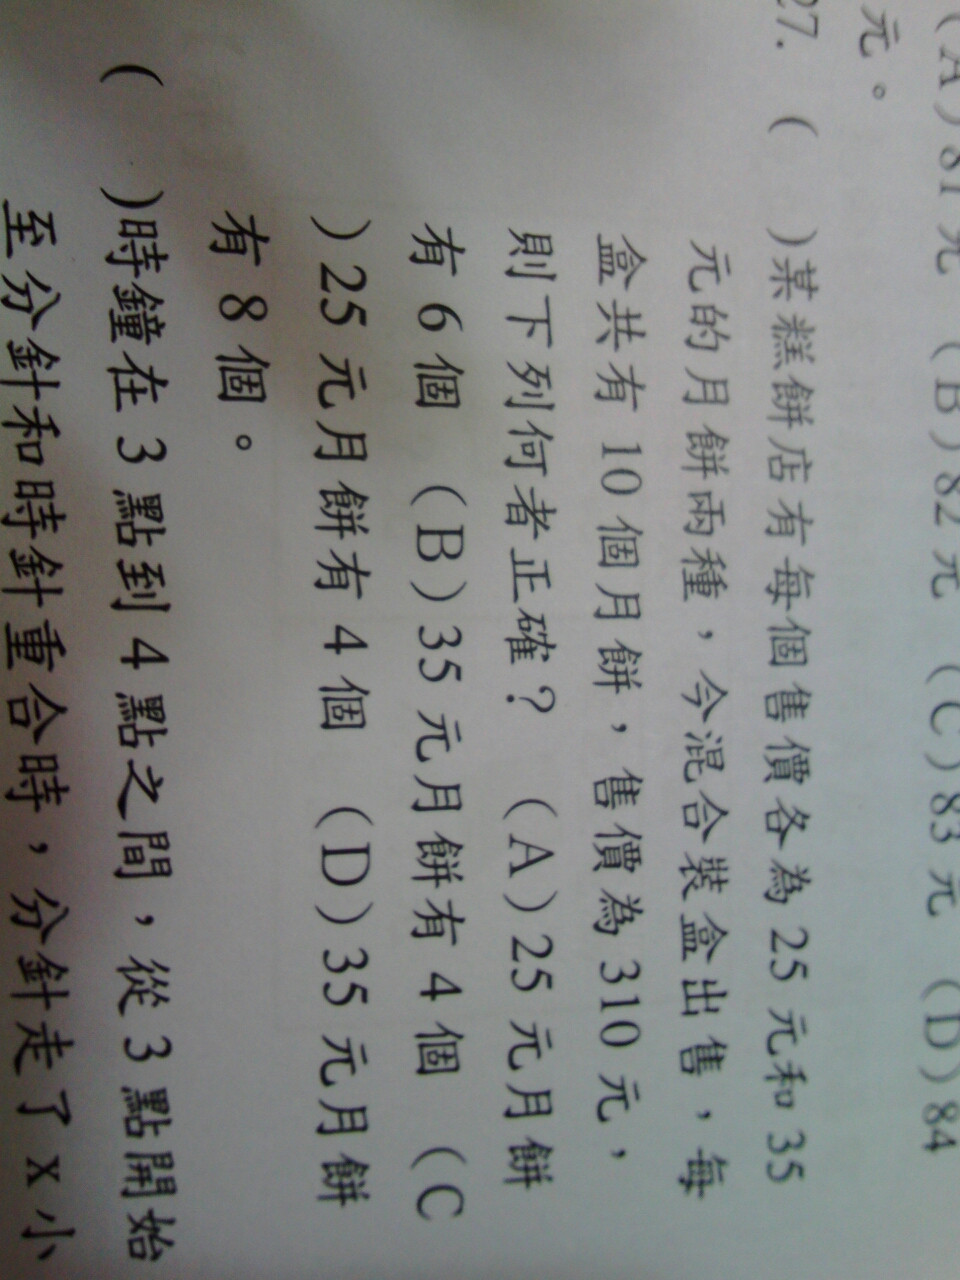 (A)81元 (B)82元 (C)83元 (D)84
元。
27. (  )某糕餅店有每個售價各為25元和35
元的月餅兩種，今混合裝盒出售，每
盒共有10個月餅，售價為310元，
則下列何者正確？ (A)25元月餅
有6個 (B)35元月餅有4個 (C
)25元月餅有4個 (D)35元月餅
有8個。
(  )時鐘在3點到4點之間，從3點開始
至分針和時針重合時，分針走了x小